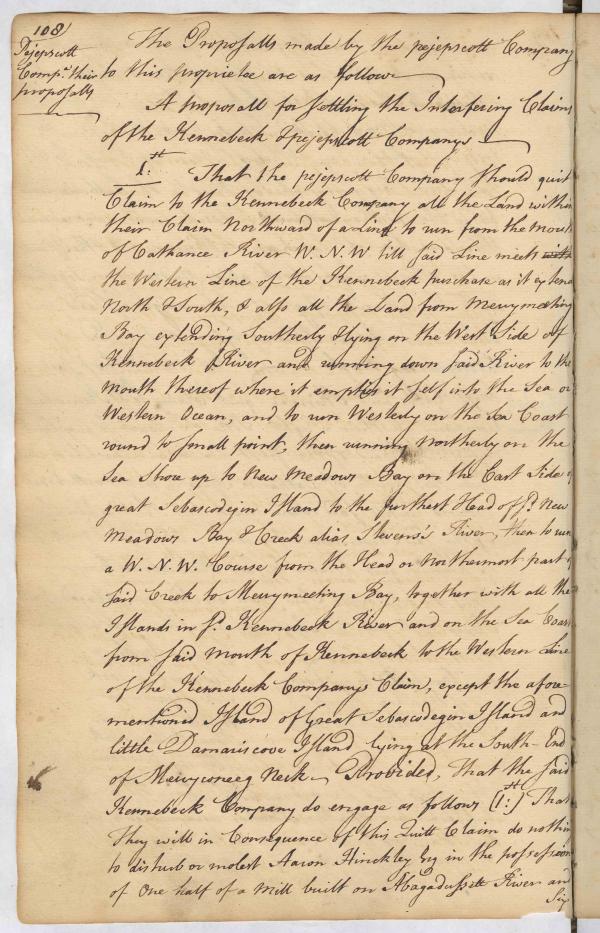 108
Pejepscott
Comp.ᵃ their
proposalls
The Proposalls made by the pejepscott Company
to this proprietee are as follow
A proposall for settling the Interfering Claims
of the Kennebeck & pejepscott Companys
1:st That the pejepscott Company should quit
Claim to the Kennebeck Company all the Land within
their Claim Northward of a Line to run from the mouth
of Cathance River W. N. W till said Line meets with
the Western Line of the Kennebeck purchase as it extend
North & South, & also all the Land from Merrymeeting
Bay extending Southerly & lying on the West Side of
Kennebeck River and running down said River to the
mouth thereof where it emptys it self into the Sea or
Western Ocean, and to run Westerly on the Sea Coast
round to small point, then running Northerly on the
Sea Shore up to New Meadows Bay on the East Side of
great Sebascodegin Island to the furthest Head of sd. New
Meadows Bay & Creek alias Stevens's River, then to run
a W. N. W. Course from the Head or Northermost part of
said Creek to Merrymeeting Bay, together with all the
Islands in sd. Kennebeck River and on the Sea Coast
from said Mouth of Kennebeck to the Western Line
of the Kennebeck Companys Claim, except the afore-
mention'd Island of Great Sebascodegin Island and
little Damariscove Island lying at the South-End
of Merryconeeg Neck Provided, That the said
Kennebeck Company do engage as follows (1:st) That
They will in Consequence of this Quitt Claim do nothing
to disturb or molest Aaron Hinckley Esq in the possession
of One half of a Mill built on Abagadussett River and
Six